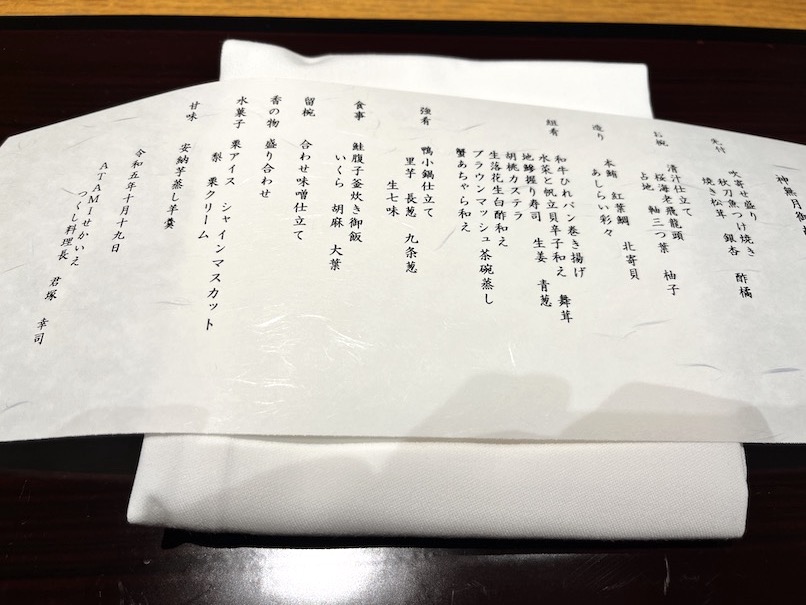 神無月御
先付
吹寄せ盛り
秋刀魚つけ焼き 酢橘
焼き松茸 銀杏
お椀
清汁仕立て
桜海老飛龍頭 柚子
占地 軸三つ葉
造り
本鮪 紅葉鯛 北寄貝
あしらい彩々
組肴
和牛ひれパン巻き揚げ
水菜と帆立貝辛子和え 舞茸
地鯵握り寿司 生姜 青葱
胡桃カステラ
生落花生白酢和え
ブラウンマッシュ茶碗蒸し
蟹あちゃら和え
強肴
鴨小鍋仕立て
里芋 長葱 九条葱
生七味
食事
鮭腹子釜炊き御飯
いくら 胡麻 大葉
留椀
合わせ味噌仕立て
香の物 盛り合わせ
水菓子
栗アイス シャインマスカット
梨 栗クリーム
甘味
安納芋蒸し羊羹
令和五年十月十九日
ATAMIせかいえ
つくし料理長 君塚 幸司